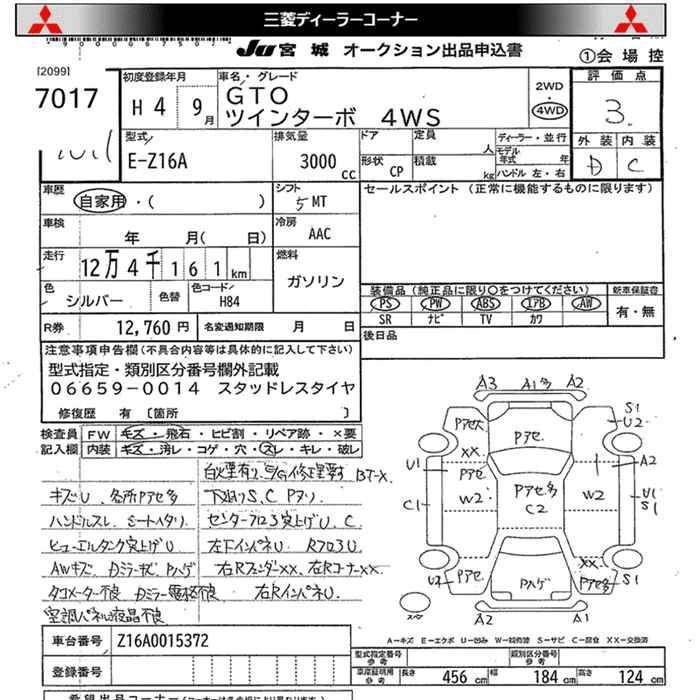 三菱ディーラーコーナー
JU 宮城 オークション出品申込書
①会場控
[2099]
7017
初度登録年月
H4 9月
車名・グレード
GTO
ツインターボ 4WS
2WD
・
4WD
評価点
3.
外装 内装
D C
型式
E-Z16A
排気量
3000cc
ドア
形状 CP
定員 人
積載 kg
ディーラー・並行
モデル年式 年
ハンドル 左・右
車歴
自家用・( )
シフト
5 MT
セールスポイント (正常に機能するものに限ります)
車検
年 月( 日)
冷房
AAC
走行
12万4千161km
燃料
ガソリン
色
シルバー
色替
色コード
H84
装備品 (純正品に限り○をつけてください)
PS PW ABS エアB AW
SR ナビ TV カワ
新車保証書
有・無
R券 12,760円
名変通知期限 月 日
後日品
注意事項申告欄(不具合内容等は具体的に記入して下さい)
型式指定・類別区分番号欄外記載
06659-0014 スタッドレスタイヤ
修復歴 有 〔箇所 〕
検査員 FW キズ・飛石・ヒビ割・リペア跡・×要
記入欄 内装 キズ・汚レ・コゲ・穴・スレ・キレ・破レ
キズU、各所Pアセ多
下廻りS、C Pヌリ
ハンドルスレ シートヘタリ
センターフロア突上げU、C
ヒューエルタンク突上げU
左下インパネU RフロアU
AWキズ DミラーキズPハゲ
右RフェンダXX、右RコーナーXX
タコメーター不良 Dミラー電格不良 右RインパネU
空調パネル液晶不良
A3 A1多 A2
Pアセ Pアセ
S1
U2
XX
U1 Pアセ
A2
W2 Pアセ多 C2 W2
C1
U1
S1
XX
U2 Pアセ Pハゲ Pアセ多 S1
A2 A1
A=キズ E=エクボ U=凹み W=補修跡 S=サビ C=腐食 XX=交換済
車台番号 Z16A0015372
登録番号
型式指定番号 参考
類別区分番号 参考
車庫証明用 参考 長さ 456cm 幅 184cm 高さ 124cm